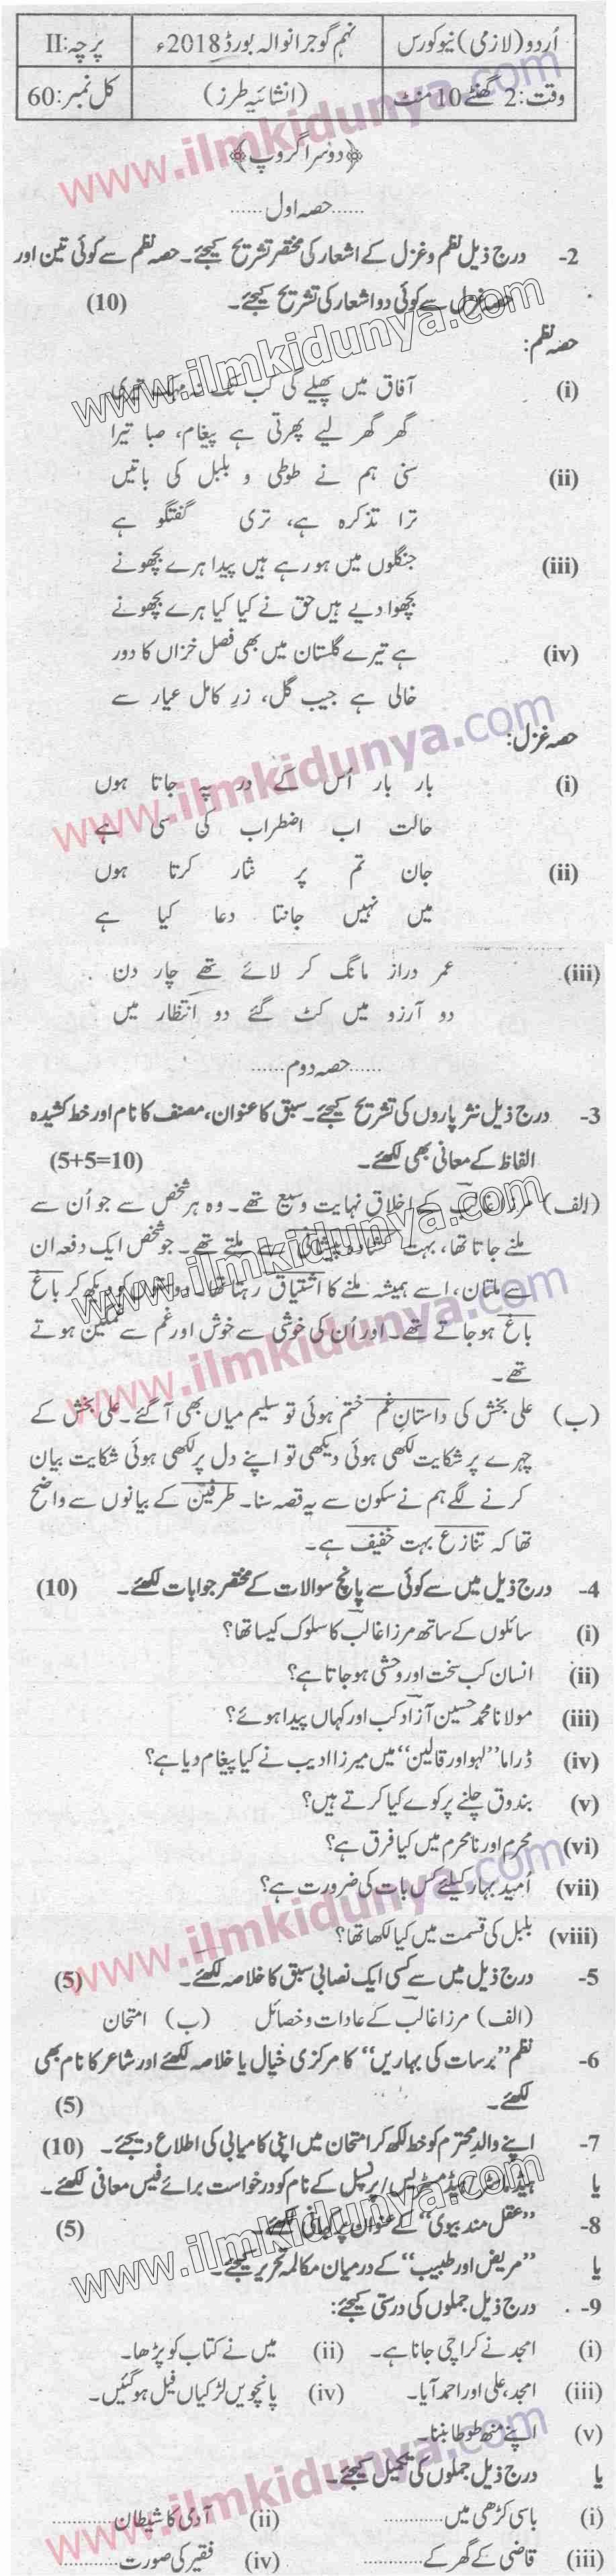 اُردو (لازمی) نیو کورس
نہم گوجرانوالہ بورڈ 2018ء
پرچہ: II
وقت: 2 گھنٹے 10 منٹ
(انشائیہ طرز)
کل نمبر: 60
﴿دوسرا گروپ﴾
......حصہ اول......
2- درج ذیل نظم و غزل کے اشعار کی مختصر تشریح کیجئے۔ حصہ نظم سے کوئی تین اور
حصہ غزل سے کوئی دو اشعار کی تشریح کیجئے۔ (10)
حصہ نظم:
(i) آفاق میں پھیلے گی کب تک نہ مہک تیری
گھر گھر لیے پھرتی ہے پیغام، صبا تیرا
(ii) سنی ہم نے طوطی و بلبل کی باتیں
ترا تذکرہ ہے، تری گفتگو ہے
(iii) جنگلوں میں ہو رہے ہیں پیدا ہرے بچھونے
بچھوا دیے ہیں حق نے کیا کیا ہرے بچھونے
(iv) ہے تیرے گلستان میں بھی فصل خزاں کا دور
خالی ہے جیب گل، زرِ کامل عیار سے
حصہ غزل:
(i) بار بار اُس کے در پہ جاتا ہوں
حالت اب اضطراب کی سی ہے
(ii) جان تم پر نثار کرتا ہوں
میں نہیں جانتا دعا کیا ہے
(iii) عمر دراز مانگ کر لائے تھے چار دن
دو آرزو میں کٹ گئے دو انتظار میں
......حصہ دوم......
3- درج ذیل نثر پاروں کی تشریح کیجئے۔ سبق کا عنوان، مصنف کا نام اور خط کشیدہ
الفاظ کے معانی بھی لکھئے۔ (5+5=10)
(الف) مرزا غالب کے اخلاق نہایت وسیع تھے۔ وہ ہر شخص سے جو اُن سے
ملنے جاتا تھا، بہت کشادہ پیشانی سے ملتے تھے۔ جو شخص ایک دفعہ ان
سے ملتا ان، اسے ہمیشہ ملنے کا اشتیاق رہتا تھا۔ دوستوں کو دیکھ کر باغ
باغ ہو جاتے تھے۔ اور اُن کی خوشی سے خوش اور غم سے غمگین ہوتے
تھے۔
(ب) علی بخش کی داستانِ غم ختم ہوئی تو سلیم میاں بھی آ گئے۔ علی بخش کے
چہرے پر شکایت لکھی ہوئی دیکھی تو اپنے دل پر لکھی ہوئی شکایت بیان
کرنے لگے ہم نے سکون سے یہ قصہ سنا۔ طرفین کے بیانوں سے واضح
تھا کہ تنازع بہت خفیف ہے۔
4- درج ذیل میں سے کوئی سے پانچ سوالات کے مختصر جوابات لکھئے۔ (10)
(i) سائلوں کے ساتھ مرزا غالب کا سلوک کیسا تھا؟
(ii) انسان کب سخت اور وحشی ہو جاتا ہے؟
(iii) مولانا محمد حسین آزاد کب اور کہاں پیدا ہوئے؟
(iv) ڈراما ”لہو اور قالین“ میں میرزا ادیب نے کیا پیغام دیا ہے؟
(v) بندوق چلنے پر کوے کیا کرتے ہیں؟
(vi) محرم اور نامحرم میں کیا فرق ہے؟
(vii) اُمید بہار کیلئے کس بات کی ضرورت ہے؟
(viii) بلبل کی قسمت میں کیا لکھا تھا؟
5- درج ذیل میں سے کسی ایک نصابی سبق کا خلاصہ لکھئے۔ (5)
(الف) مرزا غالب کے عادات و خصائل (ب) امتحان
6- نظم ”برسات کی بہاریں“ کا مرکزی خیال یا خلاصہ لکھئے اور شاعر کا نام بھی
لکھئے۔ (5)
7- اپنے والد محترم کو خط لکھ کر امتحان میں اپنی کامیابی کی اطلاع دیجئے۔ (10)
یا ہیڈ ماسٹر/ہیڈ مسٹریس/پرنسپل کے نام کو درخواست برائے فیس معافی لکھئے۔
8- ”عقل مند بیوی“ کے عنوان پر کہانی لکھئے۔ (5)
یا ”مریض اور طبیب“ کے درمیان مکالمہ تحریر کیجئے۔
9- درج ذیل جملوں کی درستی کیجئے:
(i) امجد نے کراچی جانا ہے۔ (ii) میں نے کتاب کو پڑھا۔
(iii) امجد، علی اور احمد آیا۔ (iv) پانچویں لڑکیاں فیل ہو گئیں۔
(v) اپنے منھ طوطا بننا۔
یا درج ذیل جملوں کی تکمیل کیجئے۔
(i) باسی کڑھی میں ............ (ii) آدمی کا شیطان ............
(iii) قاضی کے گھر کے ............ (iv) فقیر کی صورت ............
www.ilmkidunya.com